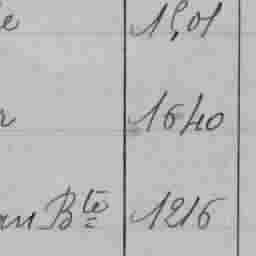 e 15,01
r 1640
an Bte 1216